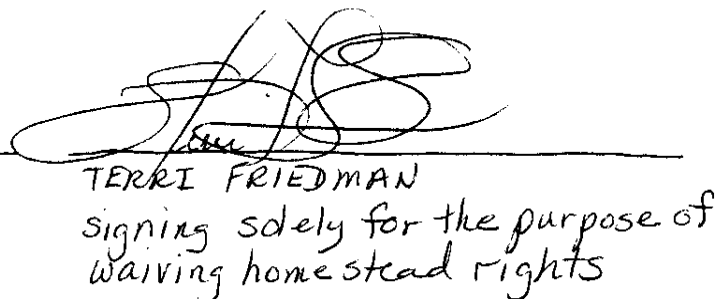 TERRI FRIEDMAN
signing solely for the purpose of
waiving homestead rights